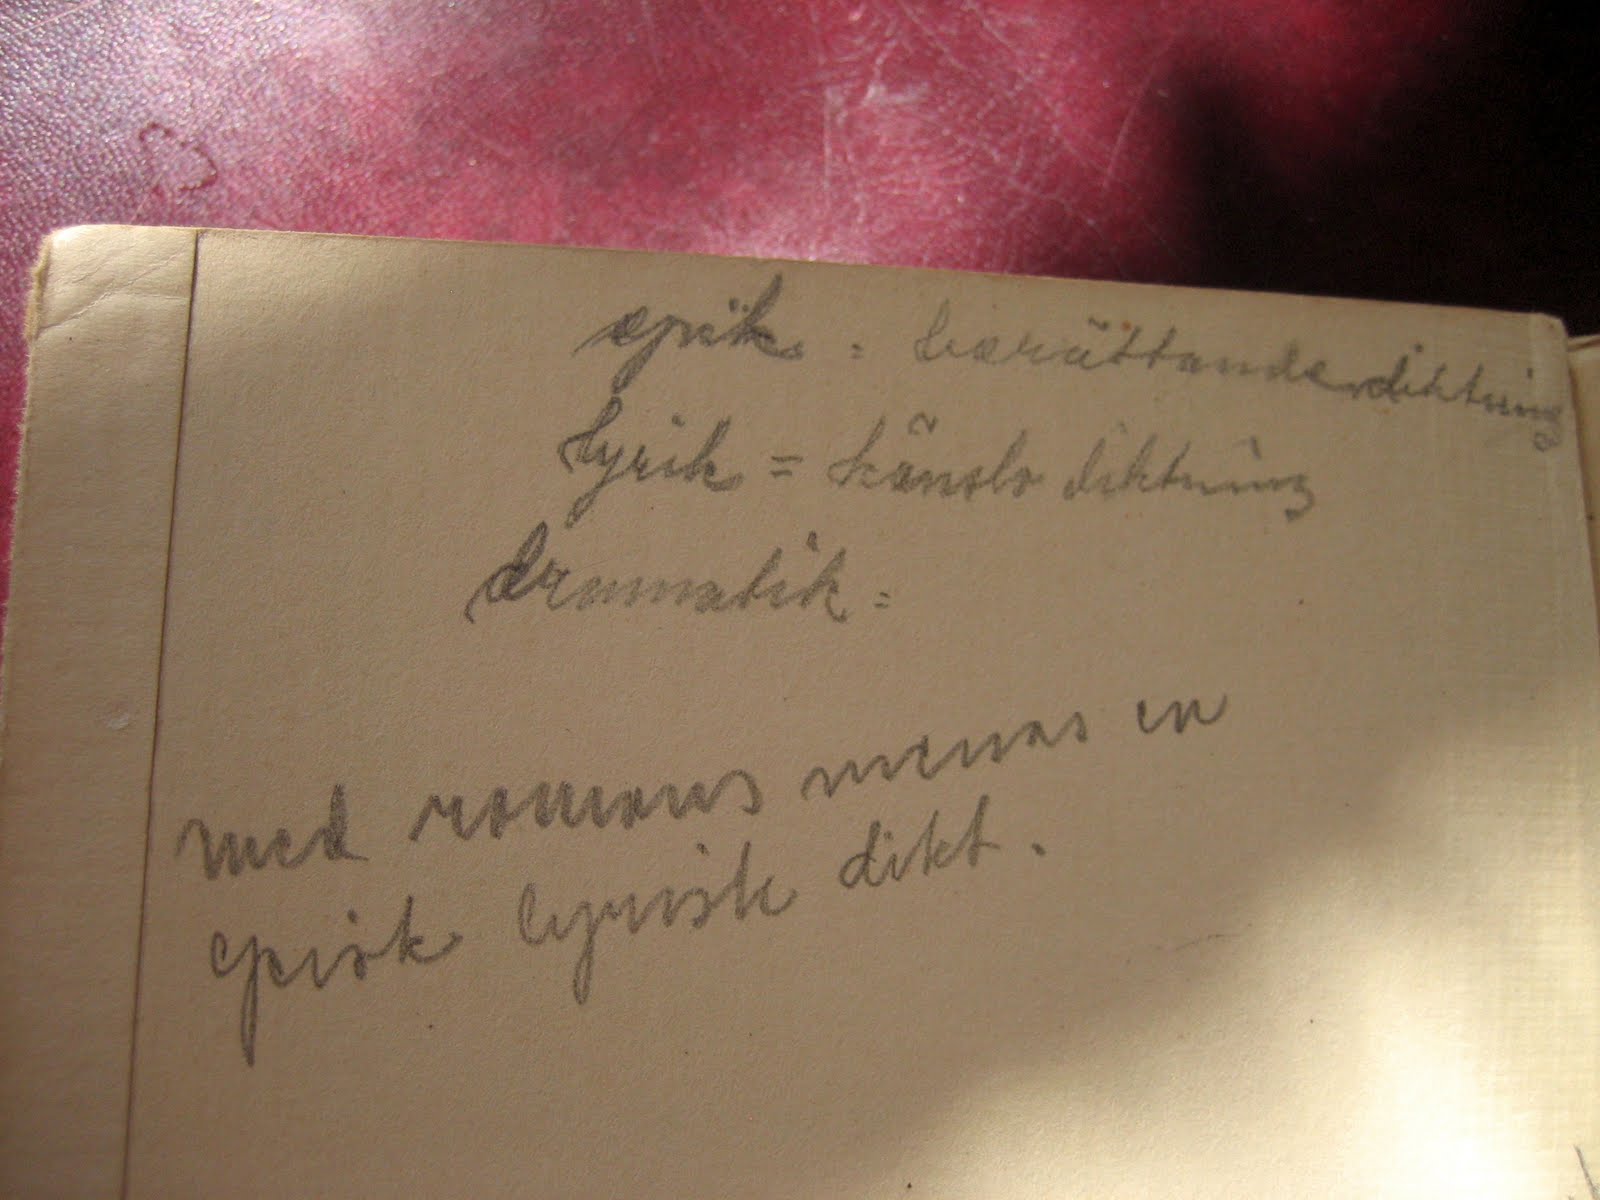 epik = berättande diktning
lyrik = känslo diktning
dramatik =
med romans menas en
episk lyrisk dikt.